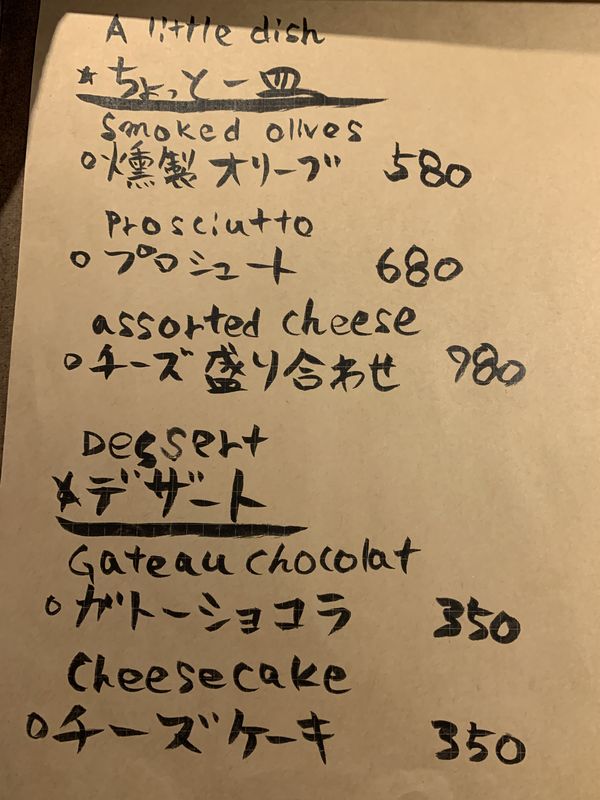 A little dish
★ちょっと一皿
smoked olives
○燻製オリーブ 580
Prosciutto
○プロシュート 680
assorted cheese
○チーズ盛り合わせ 980
Dessert
★デザート
Gateau chocolat
○ガトーショコラ 350
Cheesecake
○チーズケーキ 350